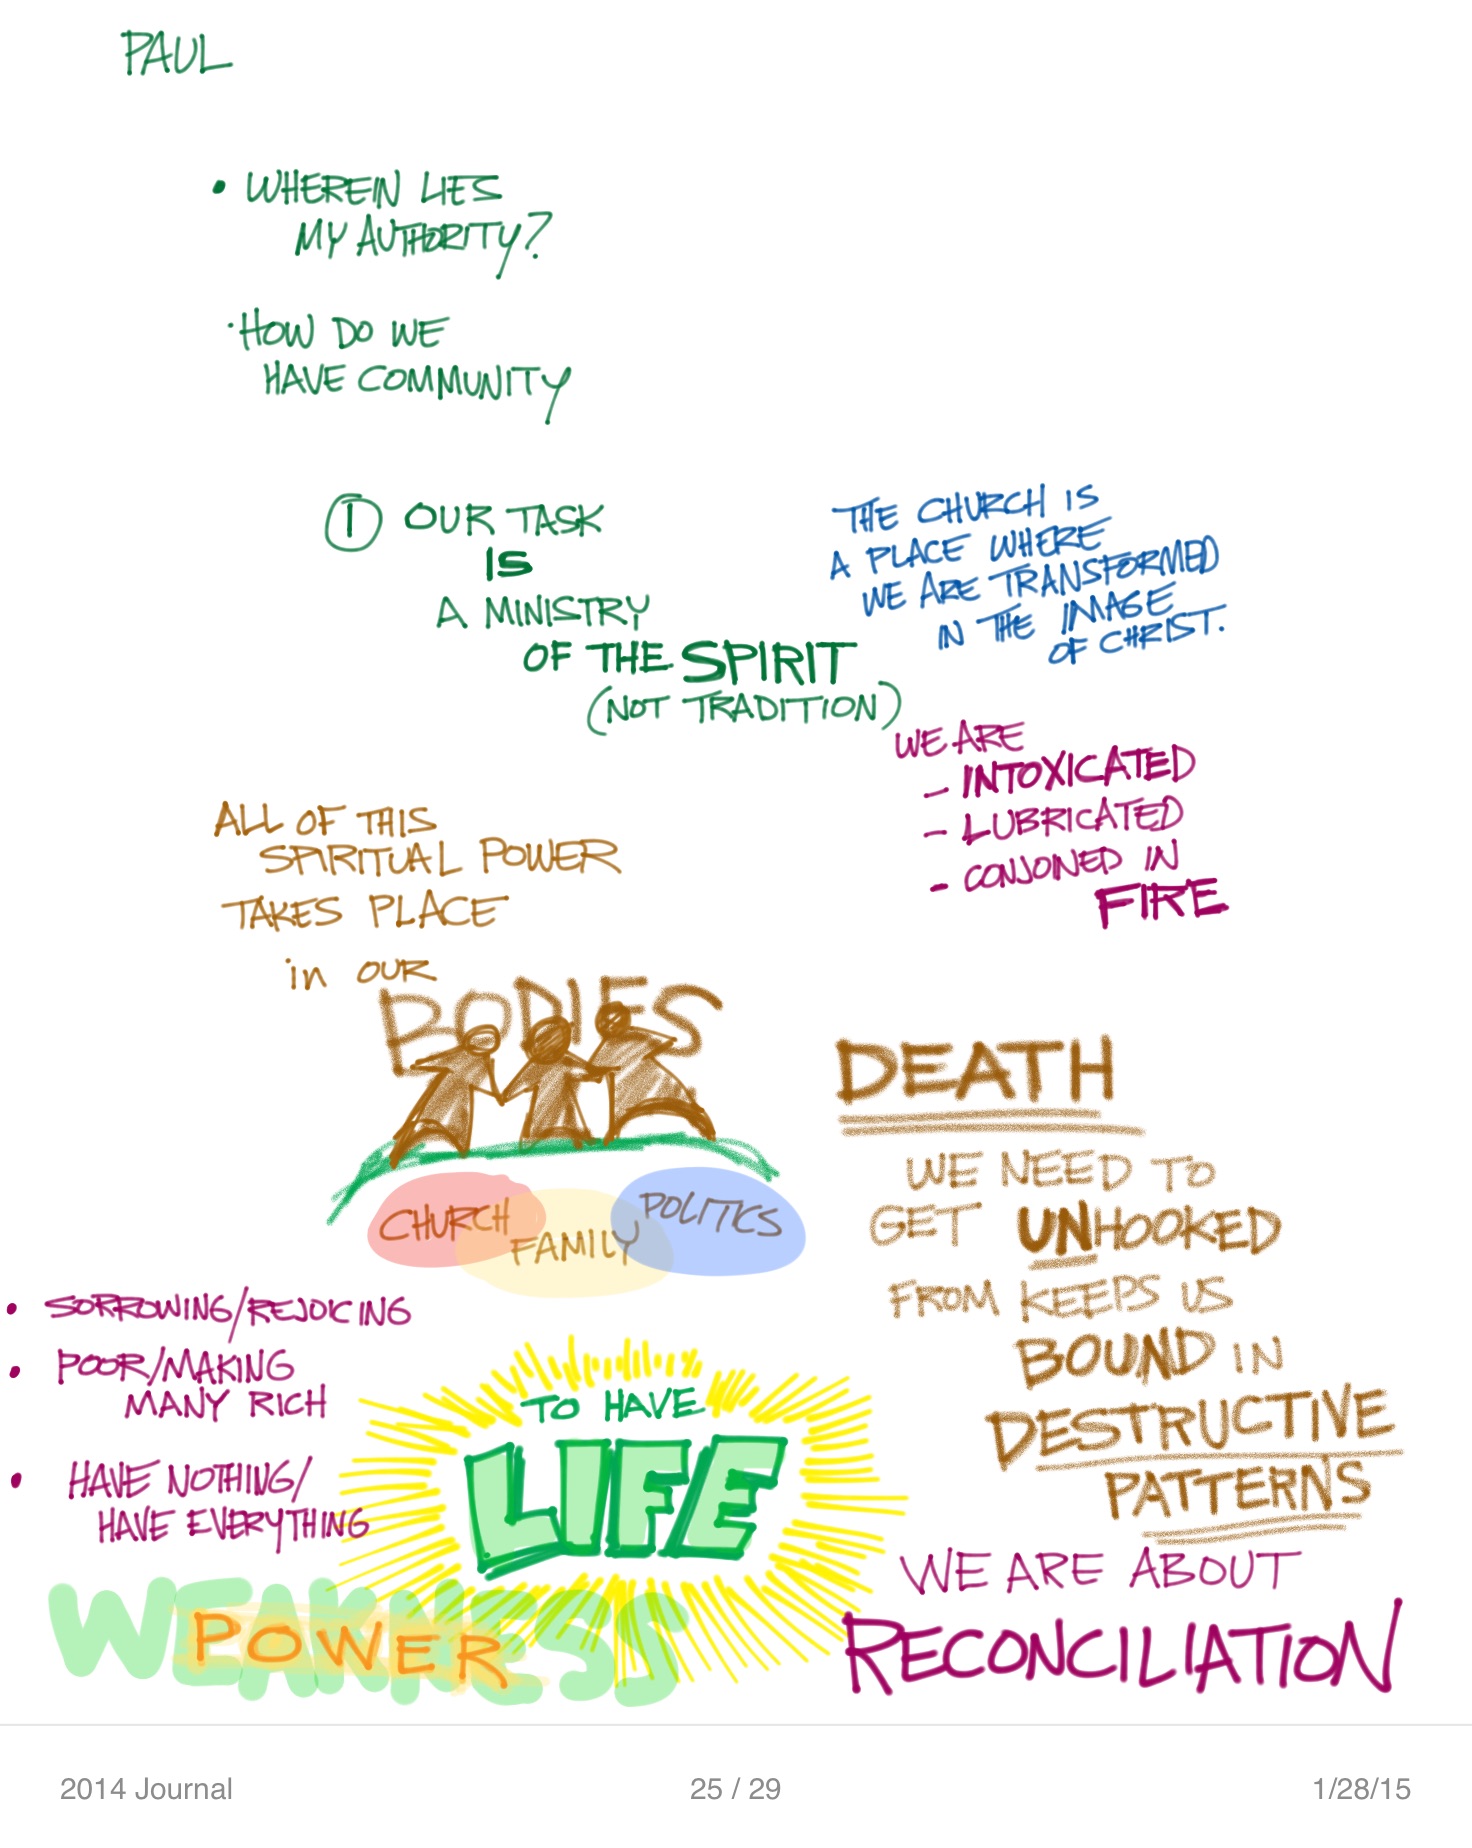 PAUL
• WHEREIN LIES
MY AUTHORITY?
• HOW DO WE
HAVE COMMUNITY
① OUR TASK
IS
A MINISTRY
OF THE SPIRIT
(NOT TRADITION)
THE CHURCH IS
A PLACE WHERE
WE ARE TRANSFORMED
IN THE IMAGE
OF CHRIST.
WE ARE
- INTOXICATED
- LUBRICATED
- CONJOINED IN
FIRE
ALL OF THIS
SPIRITUAL POWER
TAKES PLACE
in OUR
BODIES
CHURCH
FAMILY
POLITICS
DEATH
WE NEED TO
GET UNHOOKED
FROM KEEPS US
BOUND IN
DESTRUCTIVE
PATTERNS
• SORROWING/REJOICING
• POOR/MAKING
MANY RICH
• HAVE NOTHING/
HAVE EVERYTHING
TO HAVE
LIFE
WEAKNESS
POWER
WE ARE ABOUT
RECONCILIATION
2014 Journal
25 / 29
1/28/15